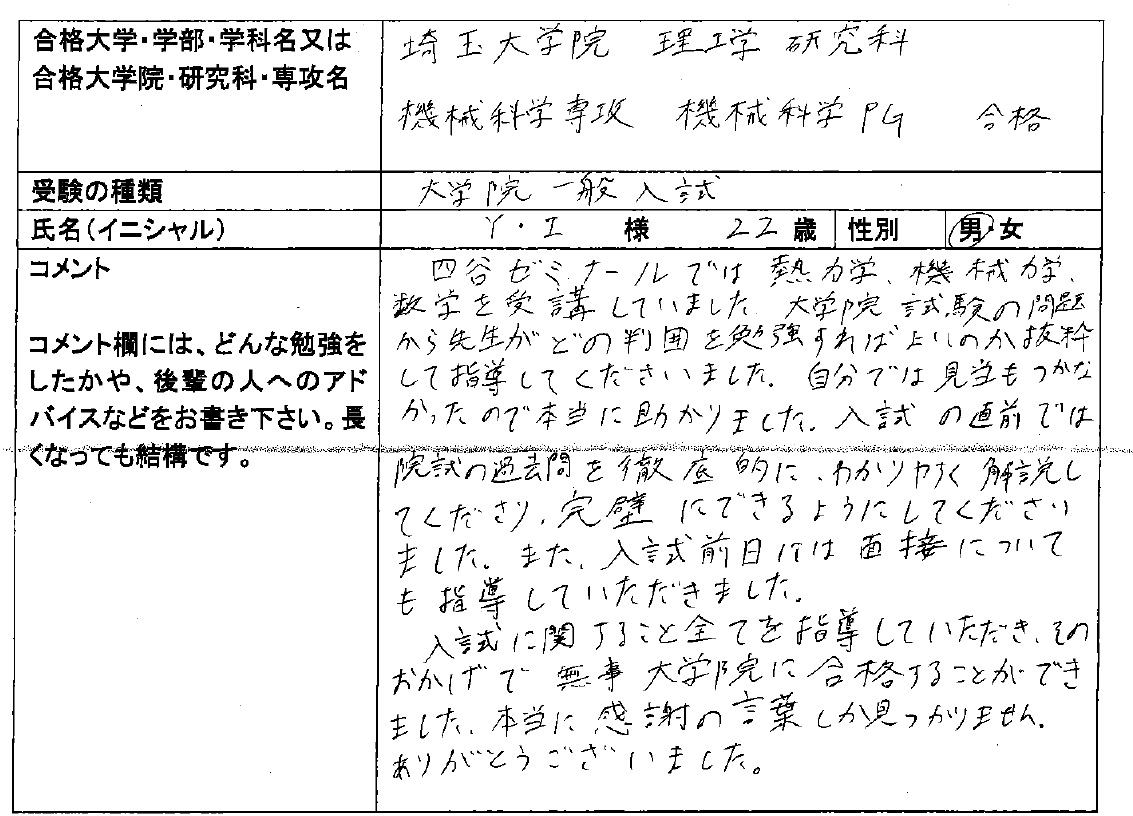 合格大学・学部・学科名又は
合格大学院・研究科・専攻名
埼玉大学院 理工学 研究科
機械科学専攻 機械科学PG 合格
受験の種類
大学院 一般入試
氏名(イニシャル)
Y・I 様 22歳 性別 男・女
コメント
コメント欄には、どんな勉強を
したかや、後輩の人へのアド
バイスなどをお書き下さい。長
くなっても結構です。
四谷ゼミナールでは熱力学、機械力学、
数学を受講していました。大学院試験の問題
から先生がどの判囲を勉強すればよいのか抜粋
して指導してくださいました。自分では見当もつかな
かったので本当に助かりました。入試の直前では
院試の過去問を徹底的に、わかりやすく解説し
てくださり、完璧にできるようにしてください
ました。また、入試前日には面接について
も指導していただきました。
入試に関すること全てを指導していただき、その
おかげで無事大学院に合格することができ
ました。本当に感謝の言葉しか見つかりません。
ありがとうございました。